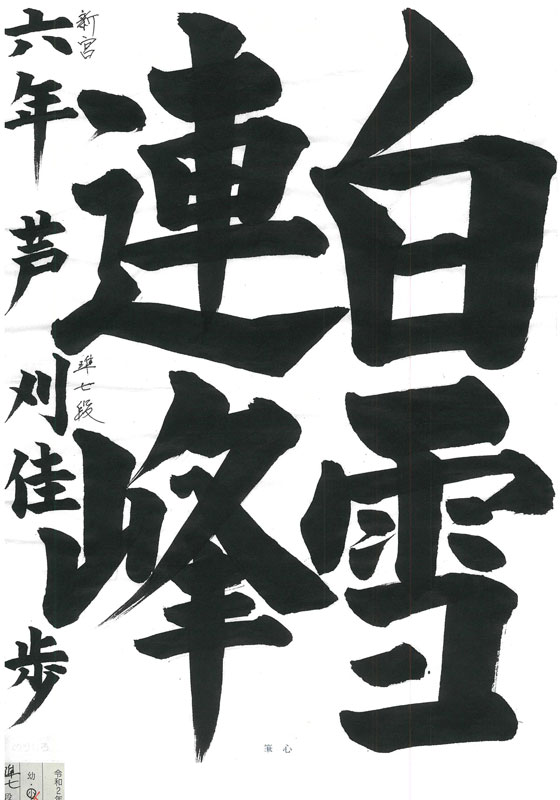 白雪
連峰
新宮
六年 芦刈佳歩
準七段
筆心
令和2年
幼・中
準七段